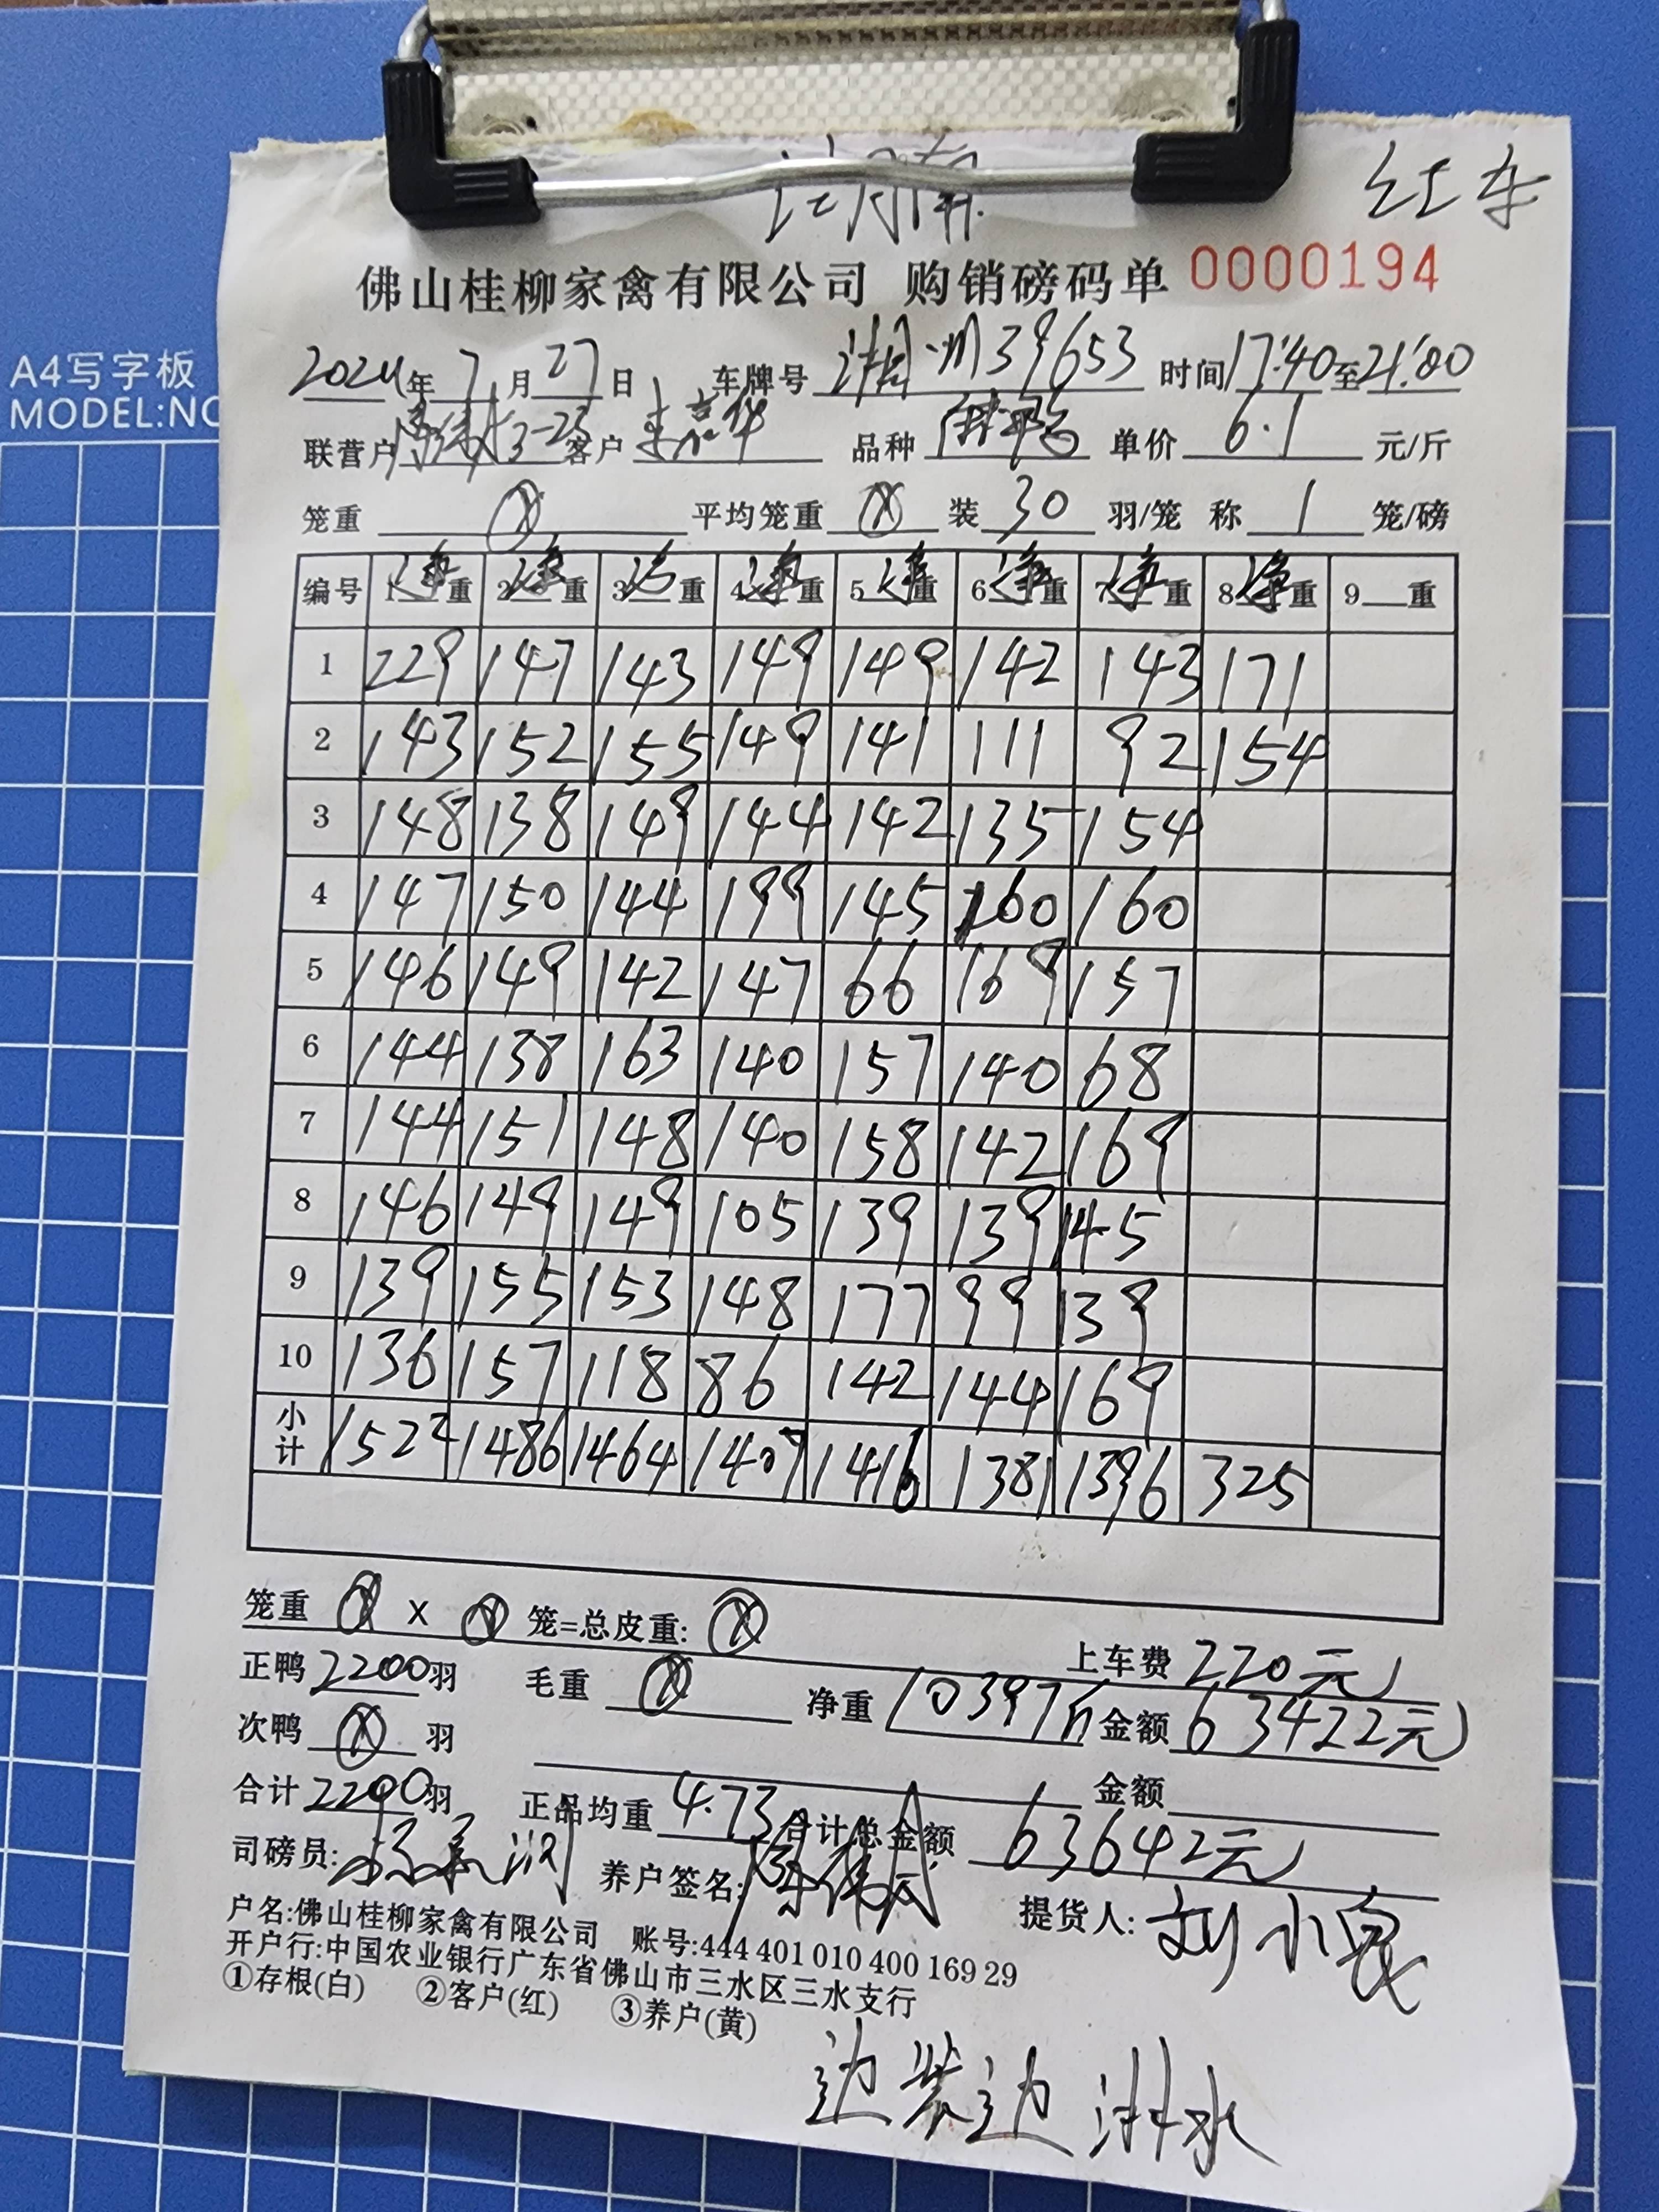 红车
佛山桂柳家禽有限公司 购销磅码单 0000194
A4写字板
MODEL:NO
2024年 7月 27日 车牌号 39653 时间 17:40 至 21:00
联营户 13-23 客户 李嘉华 品种 单价 6.1 元/斤
笼重 ⓧ 平均笼重 ⓧ 装 30 羽/笼 称 1 笼/磅
编号 1净重 2净重 3净重 4净重 5净重 6净重 7净重 8净重 9__重
1 229 147 143 149 149 142 143 171
2 143 152 155 149 141 111 92 154
3 148 138 149 144 142 135 154
4 147 150 144 199 145 160 160
5 146 149 142 147 66 169 157
6 144 138 163 140 157 140 68
7 144 151 148 140 158 142 169
8 146 149 149 105 139 139 145
9 139 155 153 148 177 99 139
10 136 157 118 86 142 144 169
小计 1522 1486 1464 1407 1416 1381 1396 325
笼重 ⓧ X ⓧ 笼=总皮重: ⓧ
上车费 220元
正鸭 2200羽 毛重 ⓧ 净重 10397斤 金额 63422元
次鸭 ⓧ 羽 金额
合计 2200羽 正品均重 4.73 合计总金额 63642元
司磅员: 养户签名: 提货人: 刘小泉
户名:佛山桂柳家禽有限公司 账号:444 401 010 400 169 29
开户行:中国农业银行广东省佛山市三水区三水支行
①存根(白) ②客户(红) ③养户(黄)
边装边淋水